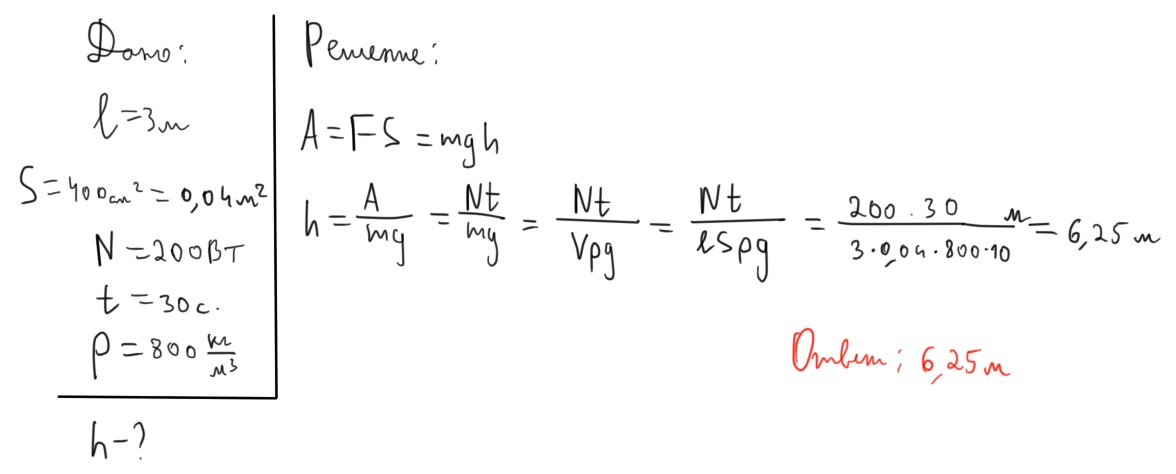 Дано:
l = 3м
S = 400см² = 0,04м²
N = 200Вт
t = 30с.
ρ = 800 кг/м³
h - ?
Решение:
A = FS = mgh
h = A/mg = Nt/mg = Nt/Vρg = Nt/lSρg = 200·30/3·0,04·800·10 м = 6,25 м
Ответ: 6,25 м